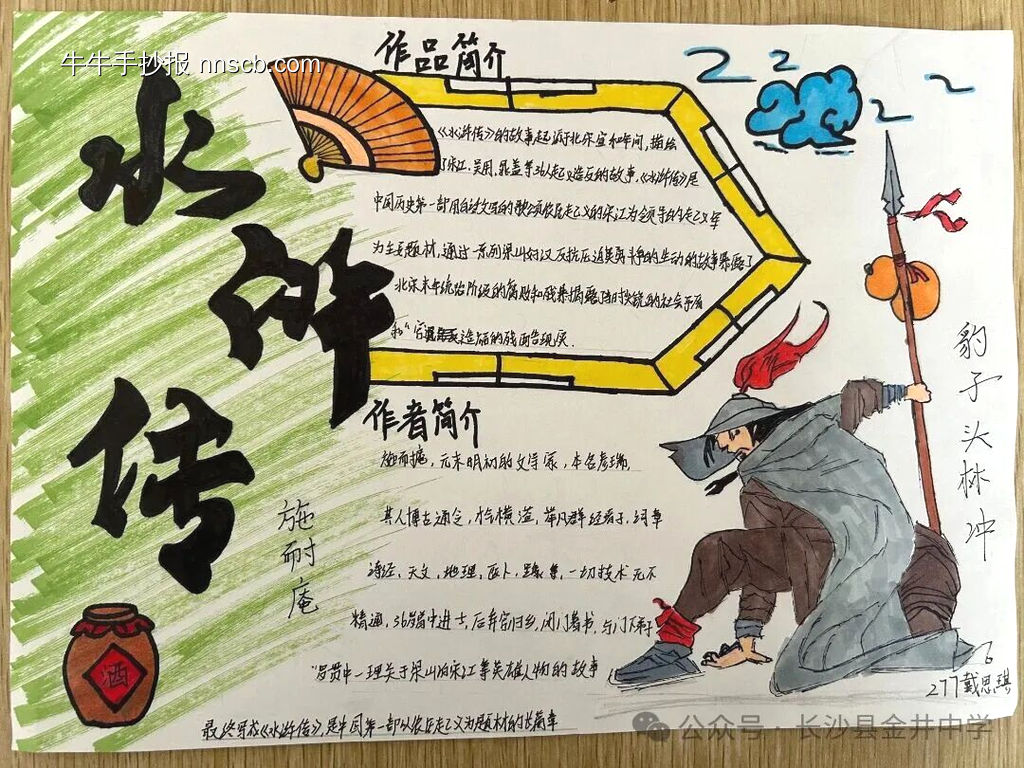 牛牛手抄报 nnscb.com
水浒传
施耐庵
作品简介
《水浒传》的故事起源于北宋宣和年间,描绘
了宋江、吴用、晁盖等36人起义造反的故事,《水浒传》是
中国历史第一部用白话文写的歌颂农民起义的宋江为领导的起义军
为主要题材,通过一系列梁山好汉反抗压迫英勇斗争的生动的故事暴露了
北宋末年统治阶级的腐败和残暴揭露当时尖锐的社会矛盾
和"官逼民反造的残酷现实.
作者简介
元末明初的文学家,本名彦端,
其人博古通今,才华横溢,举凡群经诸子,词章
诗经,天文,地理,医卜,星象等,一切技术无不
精通,36岁曾中进士,后弃官归乡,闭门著书,与门下弟子
罗贯中一理关于梁山泊宋江等英雄人物的故事
最终写成《水浒传》,是中国第一部以农民起义为题材的长篇章
酒
豹子头林冲
277戴思琪
公众号·长沙县金井中学